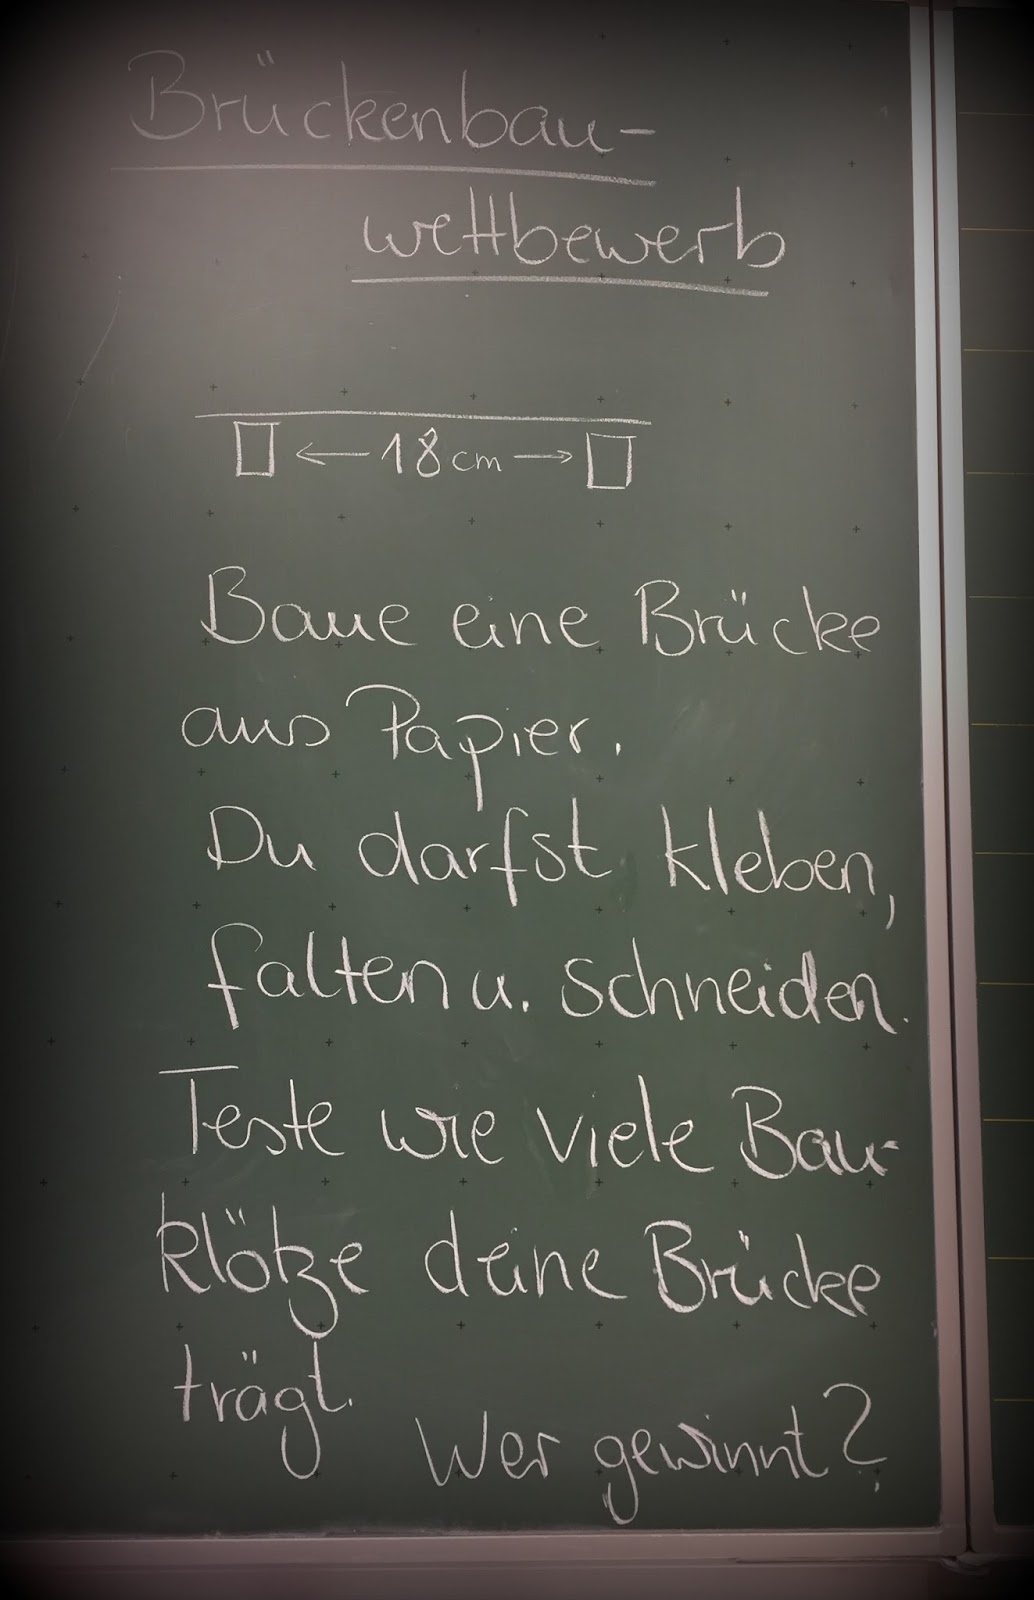 Brückenbau-
wettbewerb
← 18 cm →
Baue eine Brücke
aus Papier.
Du darfst kleben,
falten u. schneiden.
Teste wie viele Bau-
klötze deine Brücke
trägt.
Wer gewinnt?